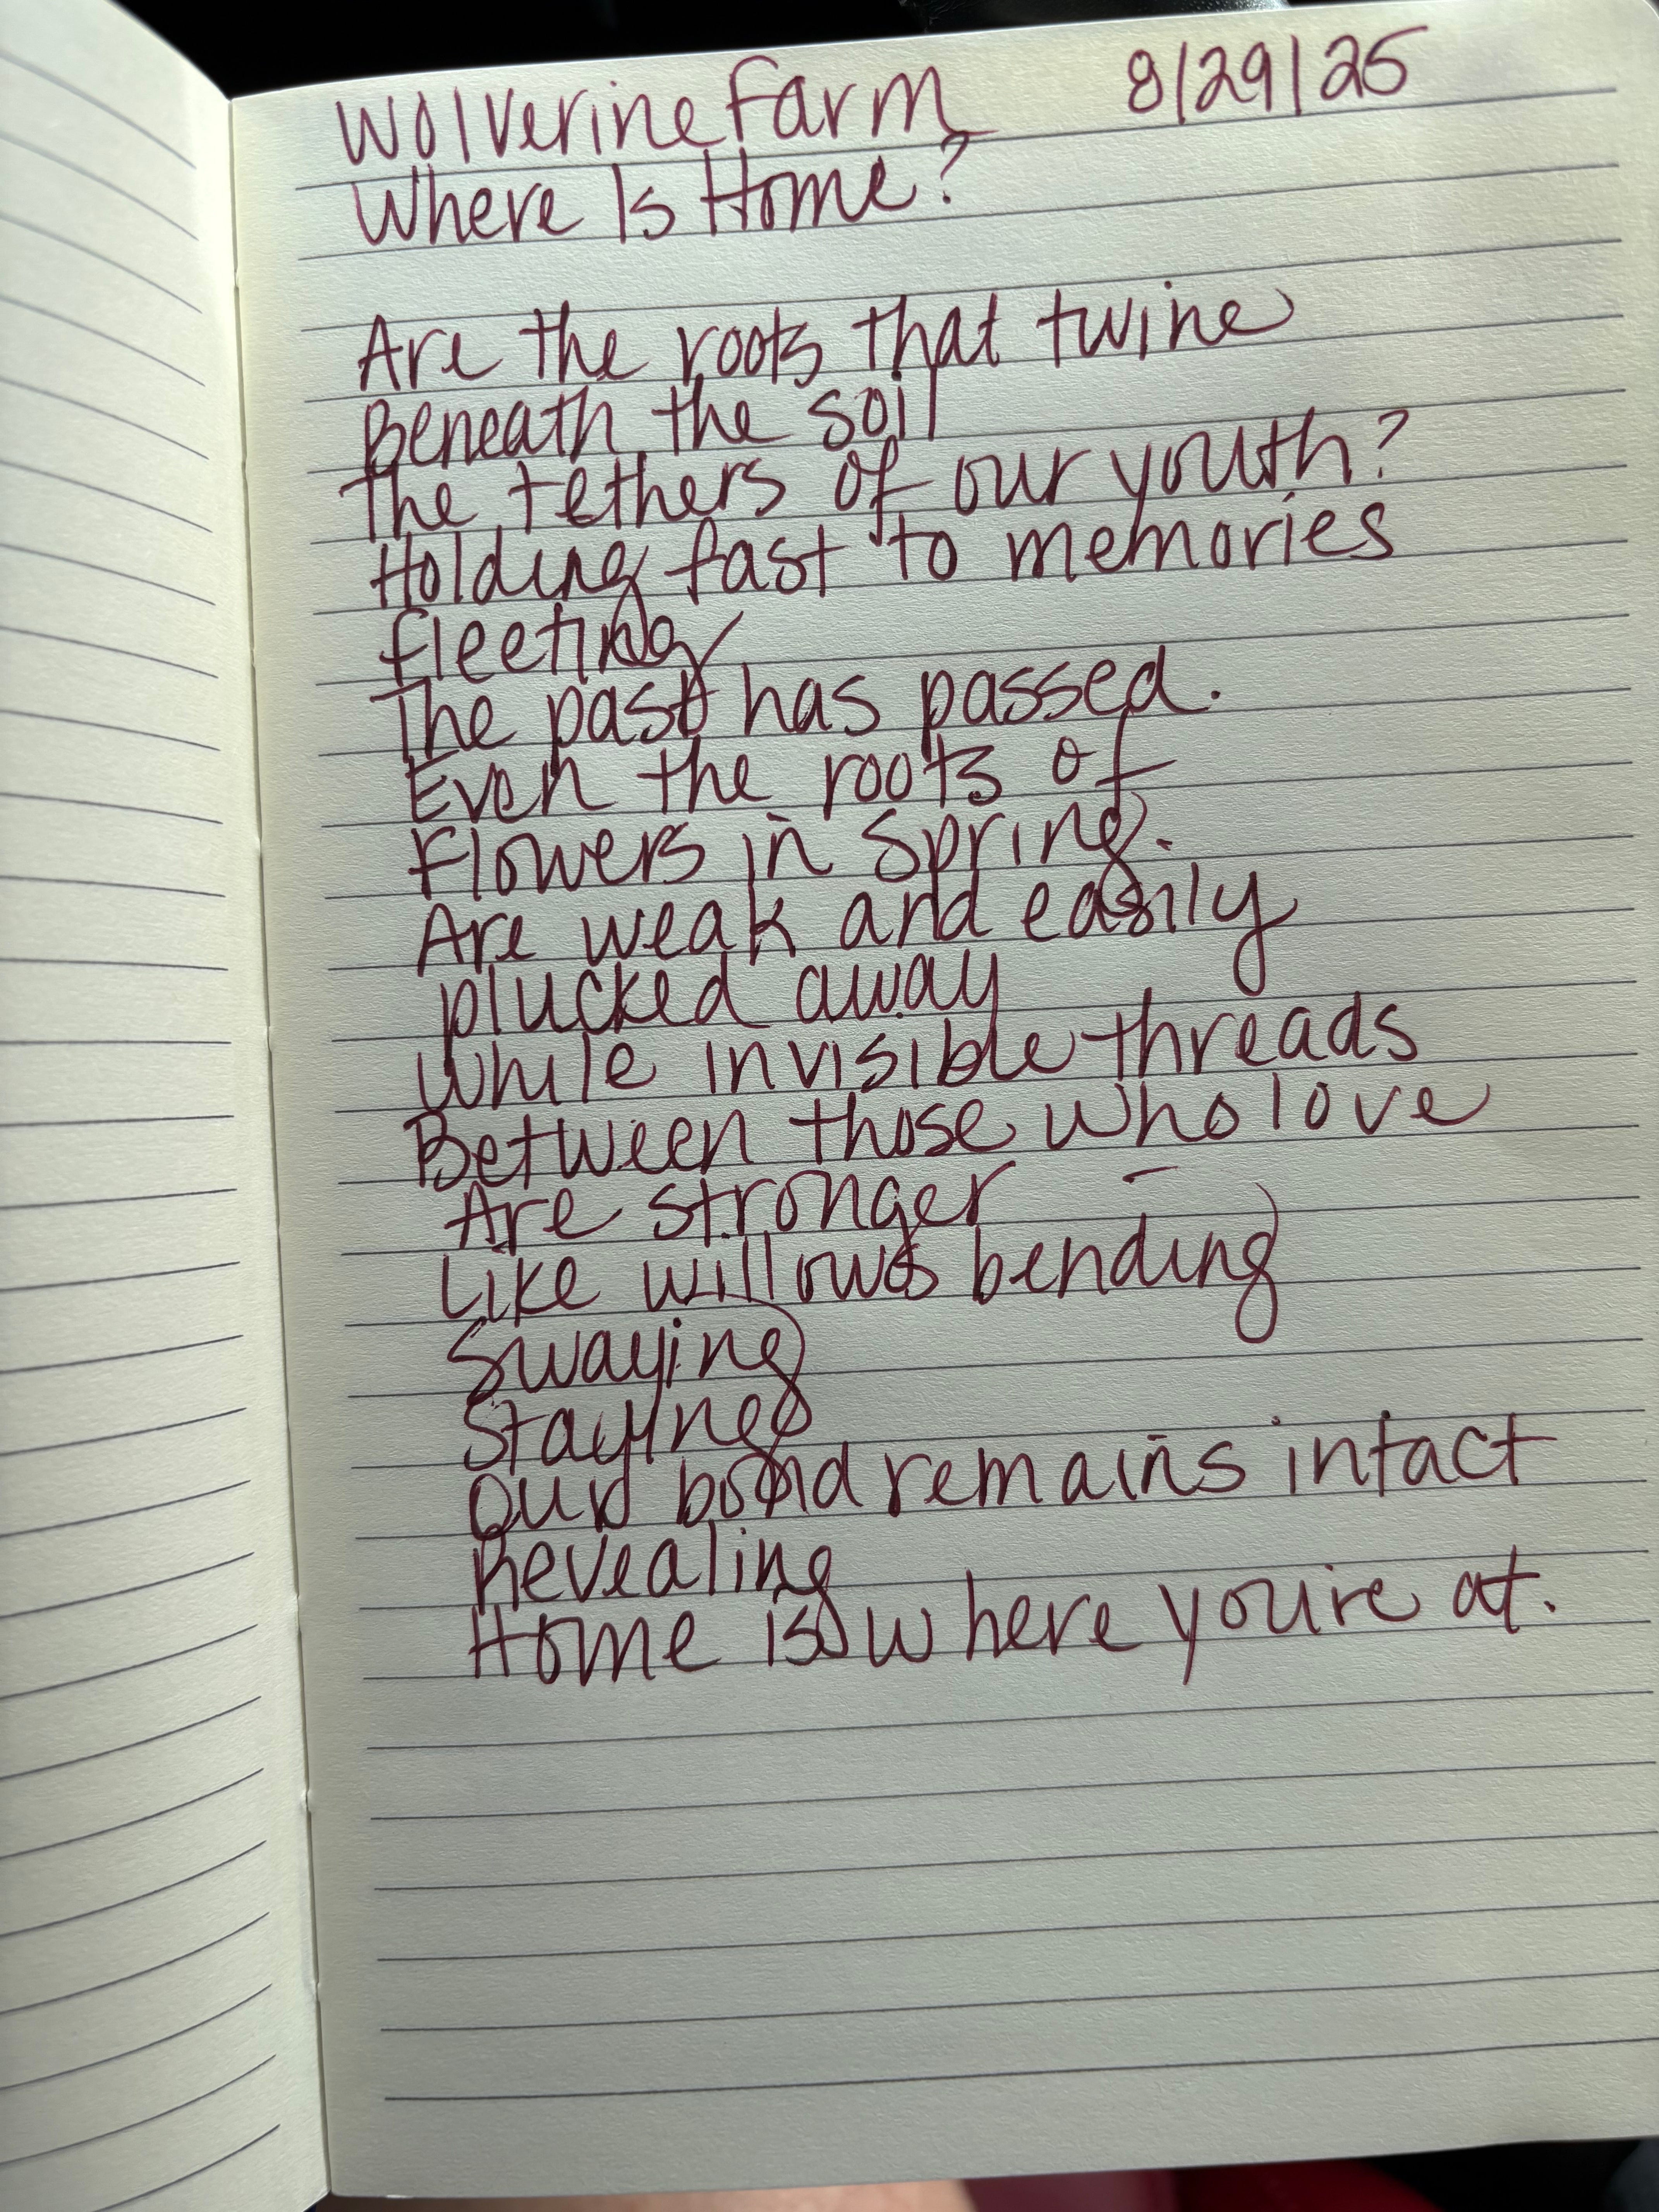 Wolverine Farm 8/29/25
Where Is Home?
Are the roots that twine
Beneath the soil
The tethers of our youth?
Holding fast to memories
fleeting
The past has passed.
Even the roots of
Flowers in Spring.
Are weak and easily
plucked away
While invisible threads
Between those who love
Are stronger –
Like willows bending
Swaying
Staying
Our bond remains intact
Revealing
Home is where you're at.